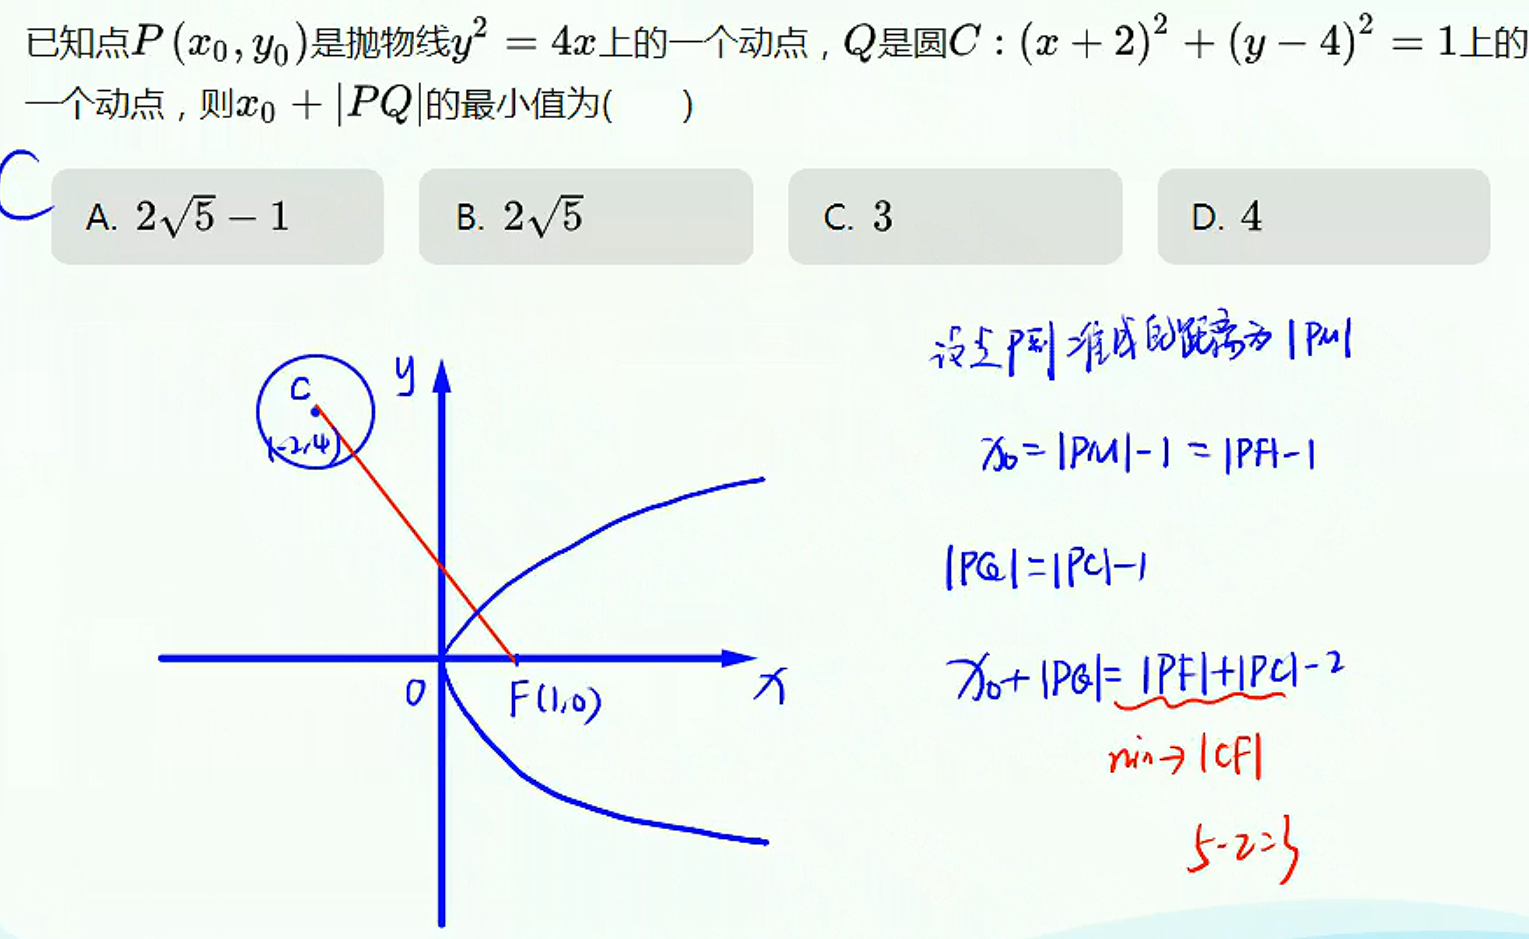 已知点P(x₀, y₀)是抛物线y² = 4x上的一个动点，Q是圆C：(x + 2)² + (y − 4)² = 1上的
一个动点，则x₀ + |PQ|的最小值为(  )
C
A. 2√5 − 1
B. 2√5
C. 3
D. 4
设点P到准线的距离为|PM|
x₀=|PM|-1=|PF|-1
|PQ|=|PC|-1
x₀+|PQ|=|PF|+|PC|-2
min→|CF|
5-2=3
y
C
(-2,4)
O
F(1,0)
x